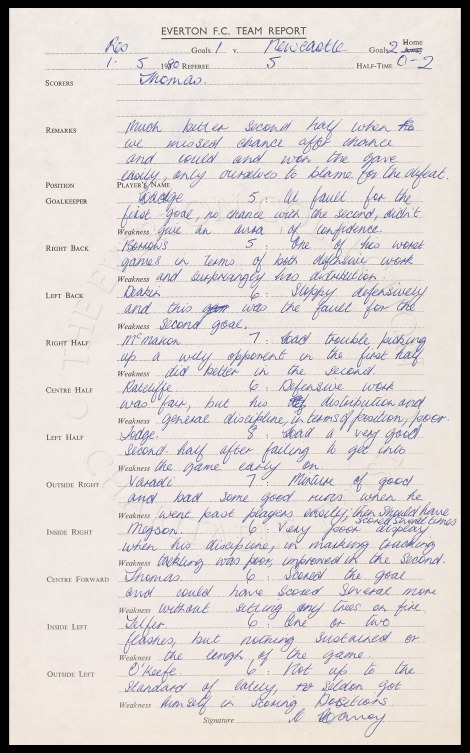 EVERTON F.C. TEAM REPORT
Res Goals 1 v. Newcastle Goals 2 Home
1. 5 1980 REFEREE 5 HALF-TIME 0-2
SCORERS Thomas.
REMARKS Much better second half when
we missed chance after chance
and could and won the game
easily, only ourselves to blame for the defeat.
POSITION PLAYER'S NAME
GOALKEEPER 5: At fault for the
first goal, no chance with the second, didn't
Weakness give an aura of confidence.
RIGHT BACK Borrows 5: One of his worst
games in terms of both defensive work
Weakness and surprisingly his distribution.
LEFT BACK 6: Sloppy defensively
and this was the fault for the
Weakness second goal.
RIGHT HALF McMahon 7: Had trouble picking
up a wily opponent in the first half
Weakness did better in the second.
CENTRE HALF Ratcliffe 6: Defensive work
was fair, but his distribution and
Weakness general discipline, in terms of position, poor.
LEFT HALF Lodge. 8: Had a very good
second half after failing to get into
Weakness the game early on.
OUTSIDE RIGHT Varadi 7: Mixture of good
and bad some good runs when he
Weakness went past players easily, then should have
scored several times
INSIDE RIGHT Megson. 6: Very poor display
when his discipline, in marking tracking
Weakness was poor, improved in the second.
CENTRE FORWARD Thomas. 6: Scored the goal
and could have scored several more
Weakness without setting any trees on fire.
INSIDE LEFT Telfer 6: One or two
flashes, but nothing sustained or
Weakness the length of the game.
OUTSIDE LEFT O'Keefe. 6: Not up to the
standard of lately, seldom got
Weakness himself in scoring positions.
Signature